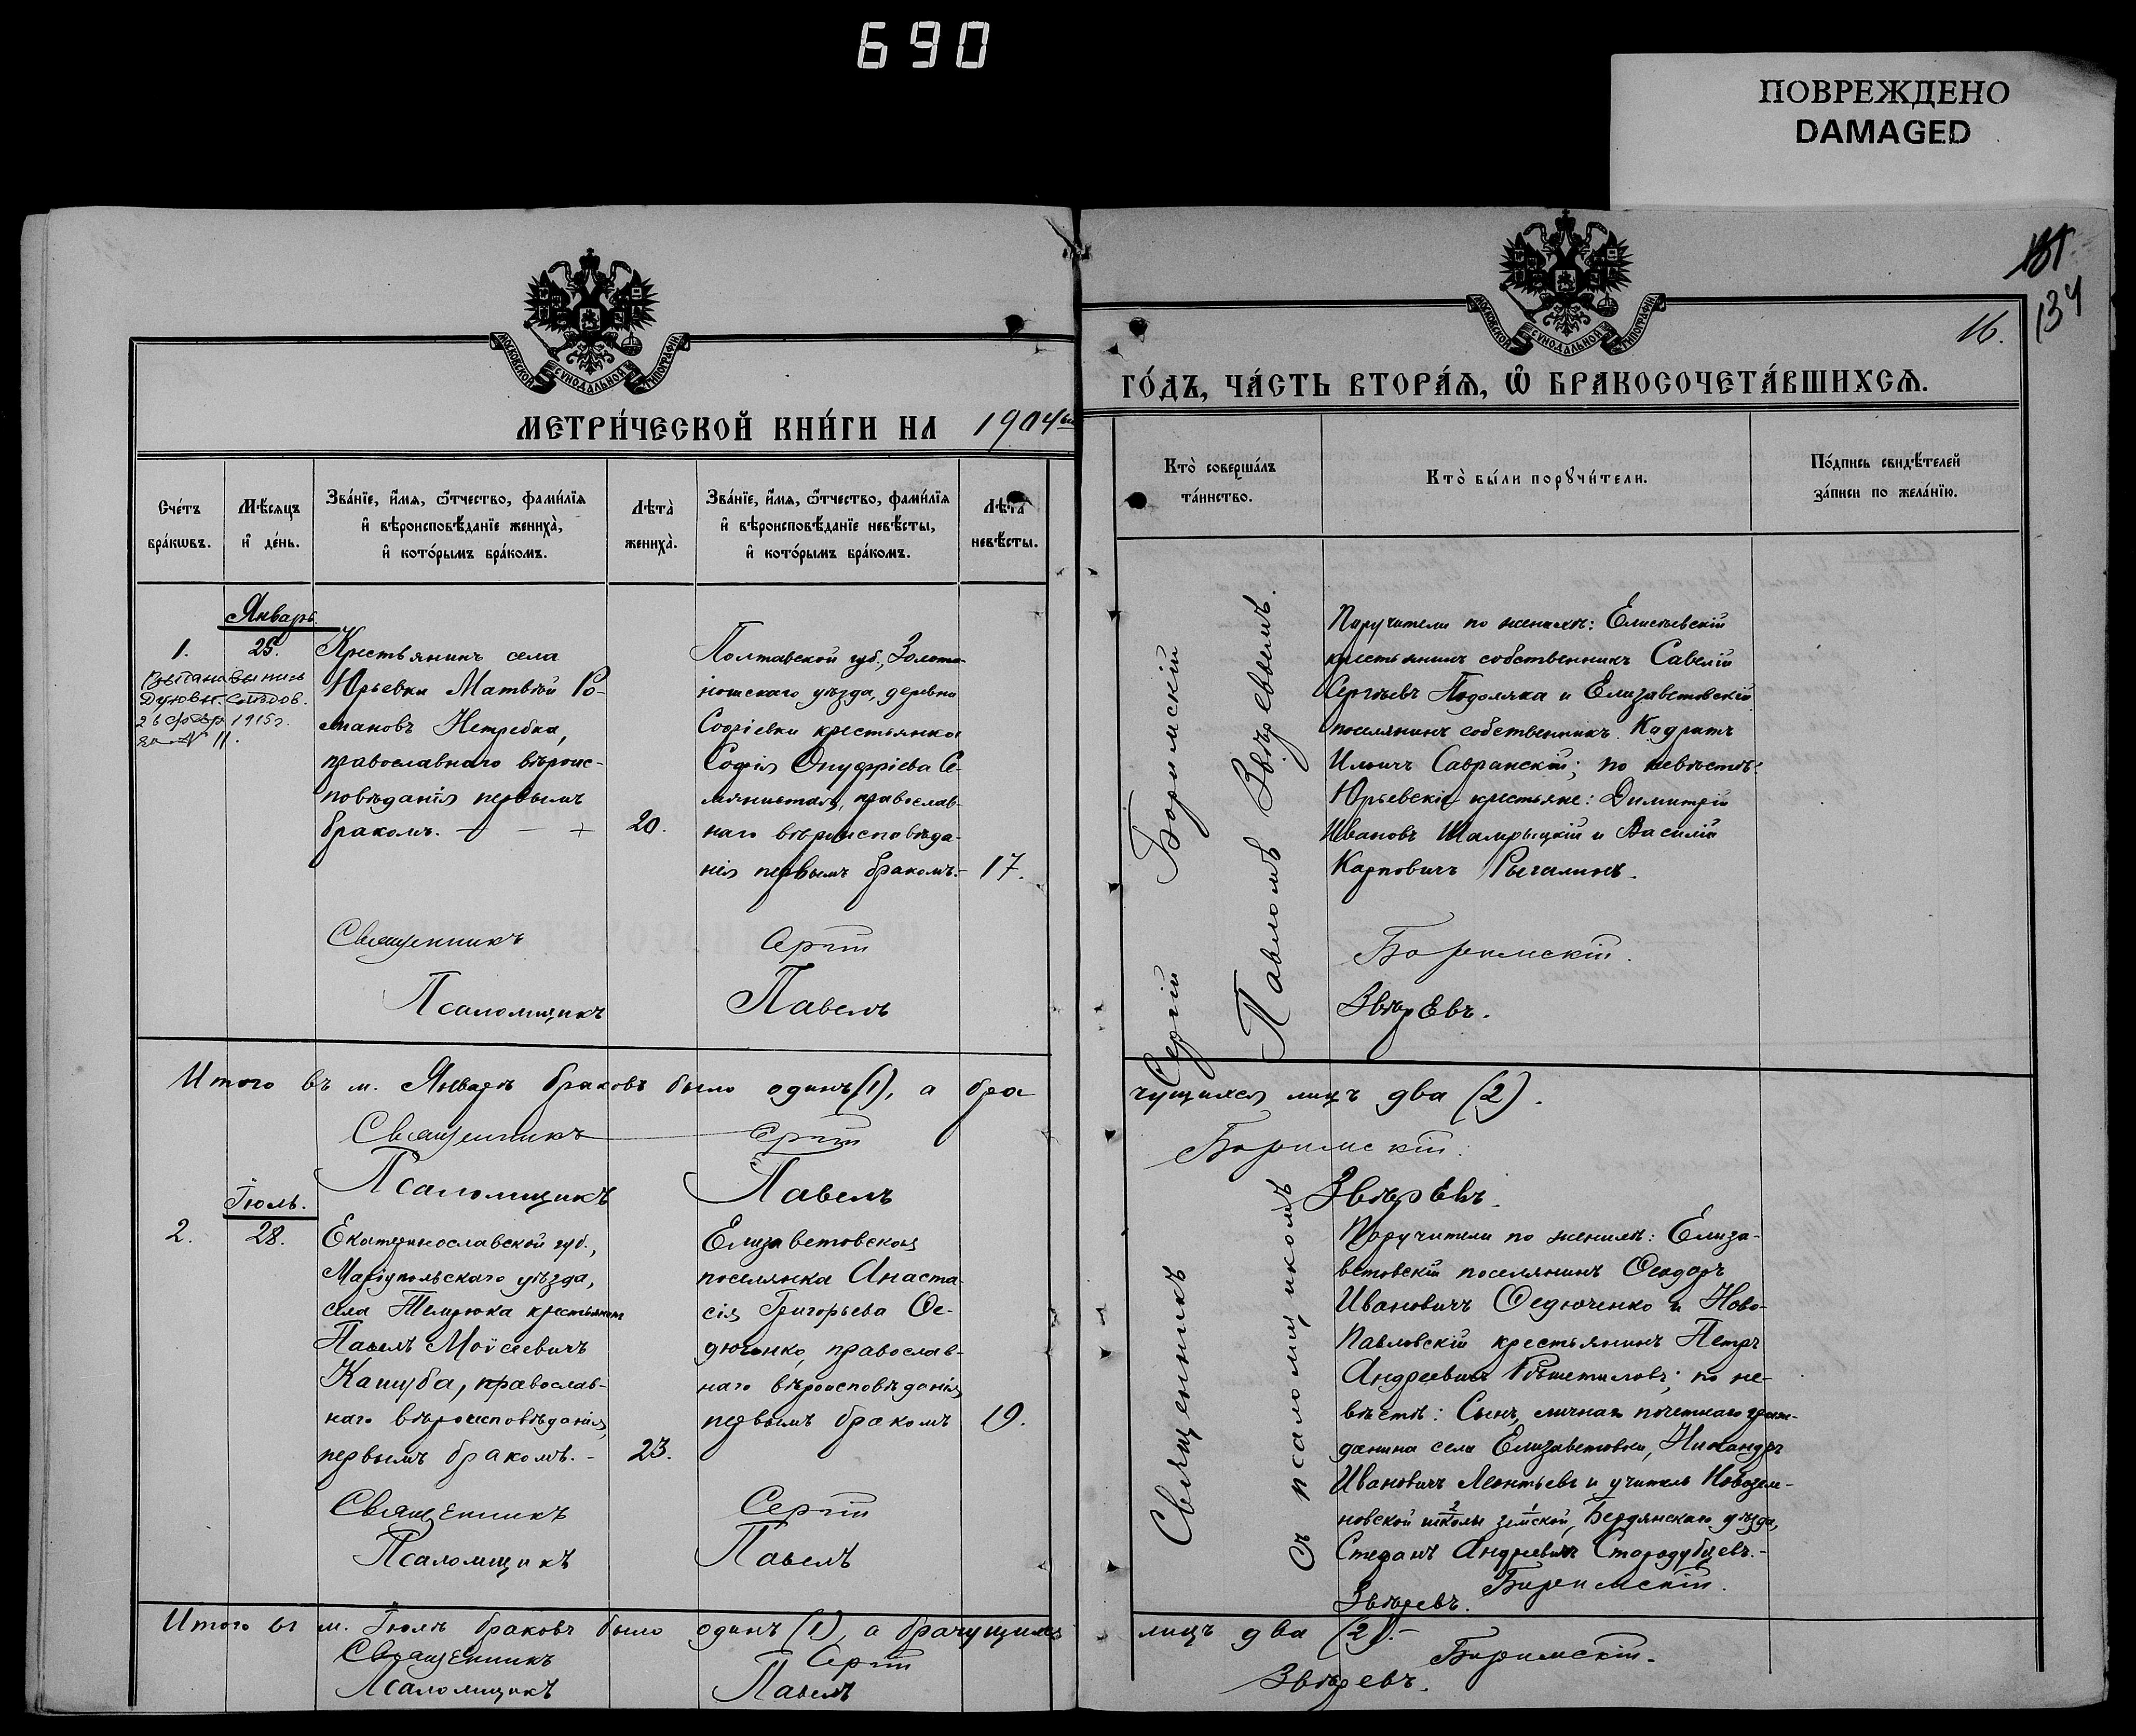 690
ПОВРЕЖДЕНО
DAMAGED
134
16.
МОСКОВСКОЙ СѴНОДАЛЬНОЙ ТИПОГРАФІИ
МОСКОВСКОЙ СѴНОДАЛЬНОЙ ТИПОГРАФІИ
МЕТРИ́ЧЕСКОЙ КНИ́ГИ НА 1904ый
ГО́ДЪ, ЧА́СТЬ ВТОРА́Ѧ, Ѽ БРАКОСОЧЕТА́ВШИХСѦ.
Сче́тъ
бра́кѡвъ.
Мѣ́сяцъ
и҆ де́нь.
Зва́нїе, и҆́мя, ѻ҆́тчество, фами́лїя
и҆ вѣроисповѣ́данїе жениха̀,
и҆ кото́рымъ бра́комъ.
Лѣта̀
жениха̀.
Зва́нїе, и҆́мя, ѻ҆́тчество, фами́лїя
и҆ вѣроисповѣ́данїе невѣ́сты,
и҆ кото́рымъ бра́комъ.
Лѣта̀
невѣ́сты.
Кто̀ соверша́лъ
та́инство.
Кто̀ бы́ли порꙋчи́тели.
По́дпись свидѣ́телей
за́писи по жела́нїю.
Январь.
1.
25.
Духовн. Слѣдов.
1915 г.
за № 11.
Крестьянинъ села
Юрьевки Матвѣй Ро-
мановъ Нетребка,
православнаго вѣроис-
повѣданія первымъ
бракомъ.
20.
Полтавской губ., Золото-
ношскаго уѣзда, деревни
Софіевки крестьянка
Софія Онуфріева Се-
православ-
наго вѣроисповѣда-
нія первымъ бракомъ.-
17.
Священникъ Сергій Боримскій
Павломъ Звѣревымъ.
съ псаломщикомъ
Поручители по женихѣ: Елисѣевскій
крестьянинъ собственникъ Савелій
Сергѣевъ Подоляка и Елизаветовскій
поселянинъ собственникъ Кодратъ
Ильичъ Савранскій; по невѣстѣ:
Юрьевскіе крестьяне: Димитрій
Ивановъ и Василій
Карповичъ
Священникъ Сергій Боримскій.
Псаломщикъ Павелъ Звѣревъ.
Итого въ м. Январѣ браковъ было одинъ (1), а бра
чущихся лицъ два (2).
Священникъ Сергій Боримскій.
Псаломщикъ Павелъ Звѣревъ.
Іюль.
2.
28.
Екатеринославской губ.,
Маріупольскаго уѣзда,
села Темрюка крестьянинъ
Павелъ Моисеевичъ
Кашуба, православ-
наго вѣроисповѣданія,
первымъ бракомъ.-
23.
Елизаветовская
поселянка Анаста-
сія Григорьева Ѳе-
дюченко, православ-
наго вѣроисповѣданія,
первымъ бракомъ
19.
Поручители по женихѣ: Елиза-
ветовскій поселянинъ Ѳеодоръ
Ивановичъ Ѳедюченко и Ново-
Павловскій крестьянинъ Петръ
Андреевичъ Рѣшетиловъ; по не-
вѣстѣ: Сынъ личнаго почетнаго граж-
данина села Елизаветовки, Никандръ
Ивановичъ Леонтьевъ и учитель
новской школы земской, Бердянскаго уѣзда,
Стефанъ Андреевичъ Стародубцевъ.-
Священникъ Сергій Боримскій.
Псаломщикъ Павелъ Звѣревъ.
Итого въ м. Іюлѣ браковъ было одинъ (1), а брачущихся
лицъ два (2).-
Священникъ Сергій Боримскій.
Псаломщикъ Павелъ Звѣревъ.